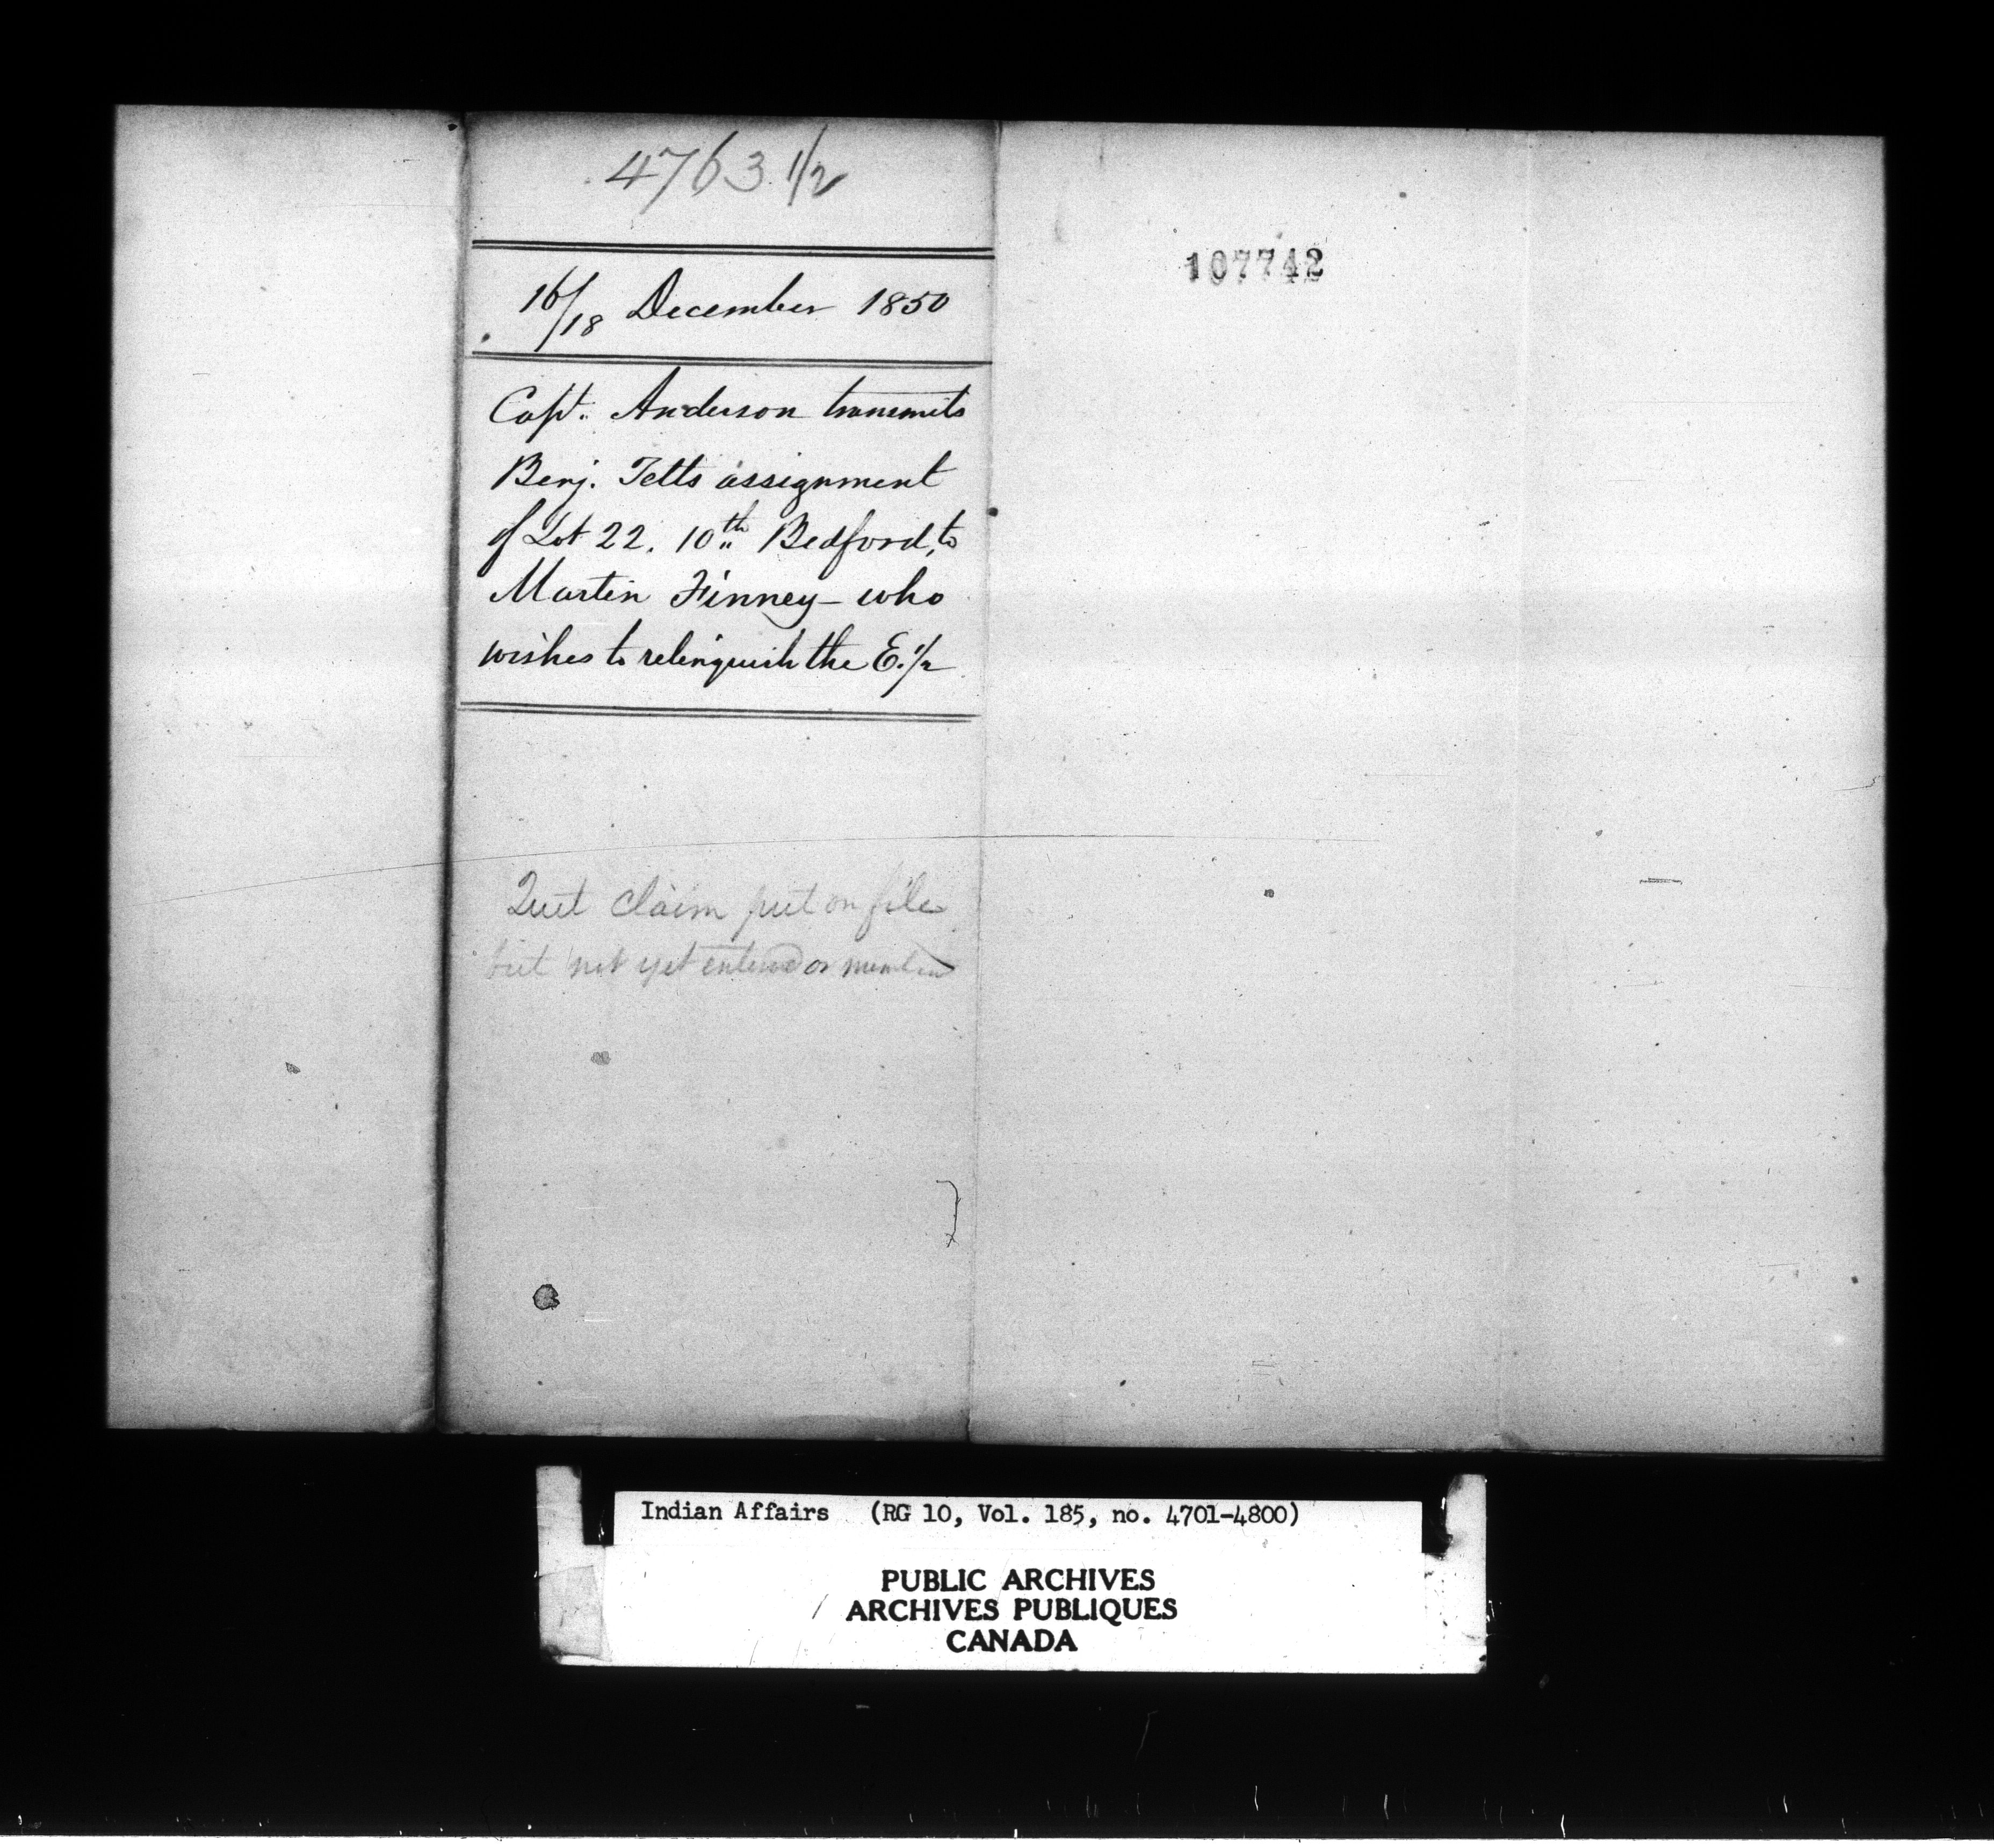 4763 1/2
16/18 December 1850
Capt. Anderson transmits
Benj. Tetts assignment
of Lot 22. 10th Bedford, to
Martin Finney - who
wishes to relinquish the E. 1/2
Quit claim put on file
but not yet entered or
107742
Indian Affairs (RG 10, Vol. 185, no. 4701-4800)
PUBLIC ARCHIVES
ARCHIVES PUBLIQUES
CANADA